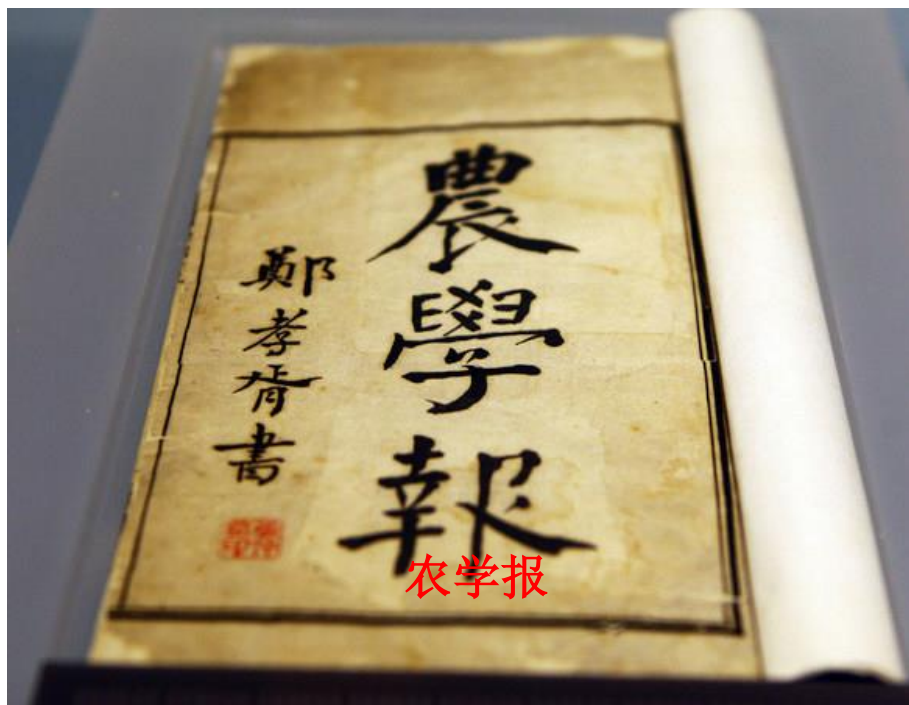 農學報
鄭孝胥書
农学报